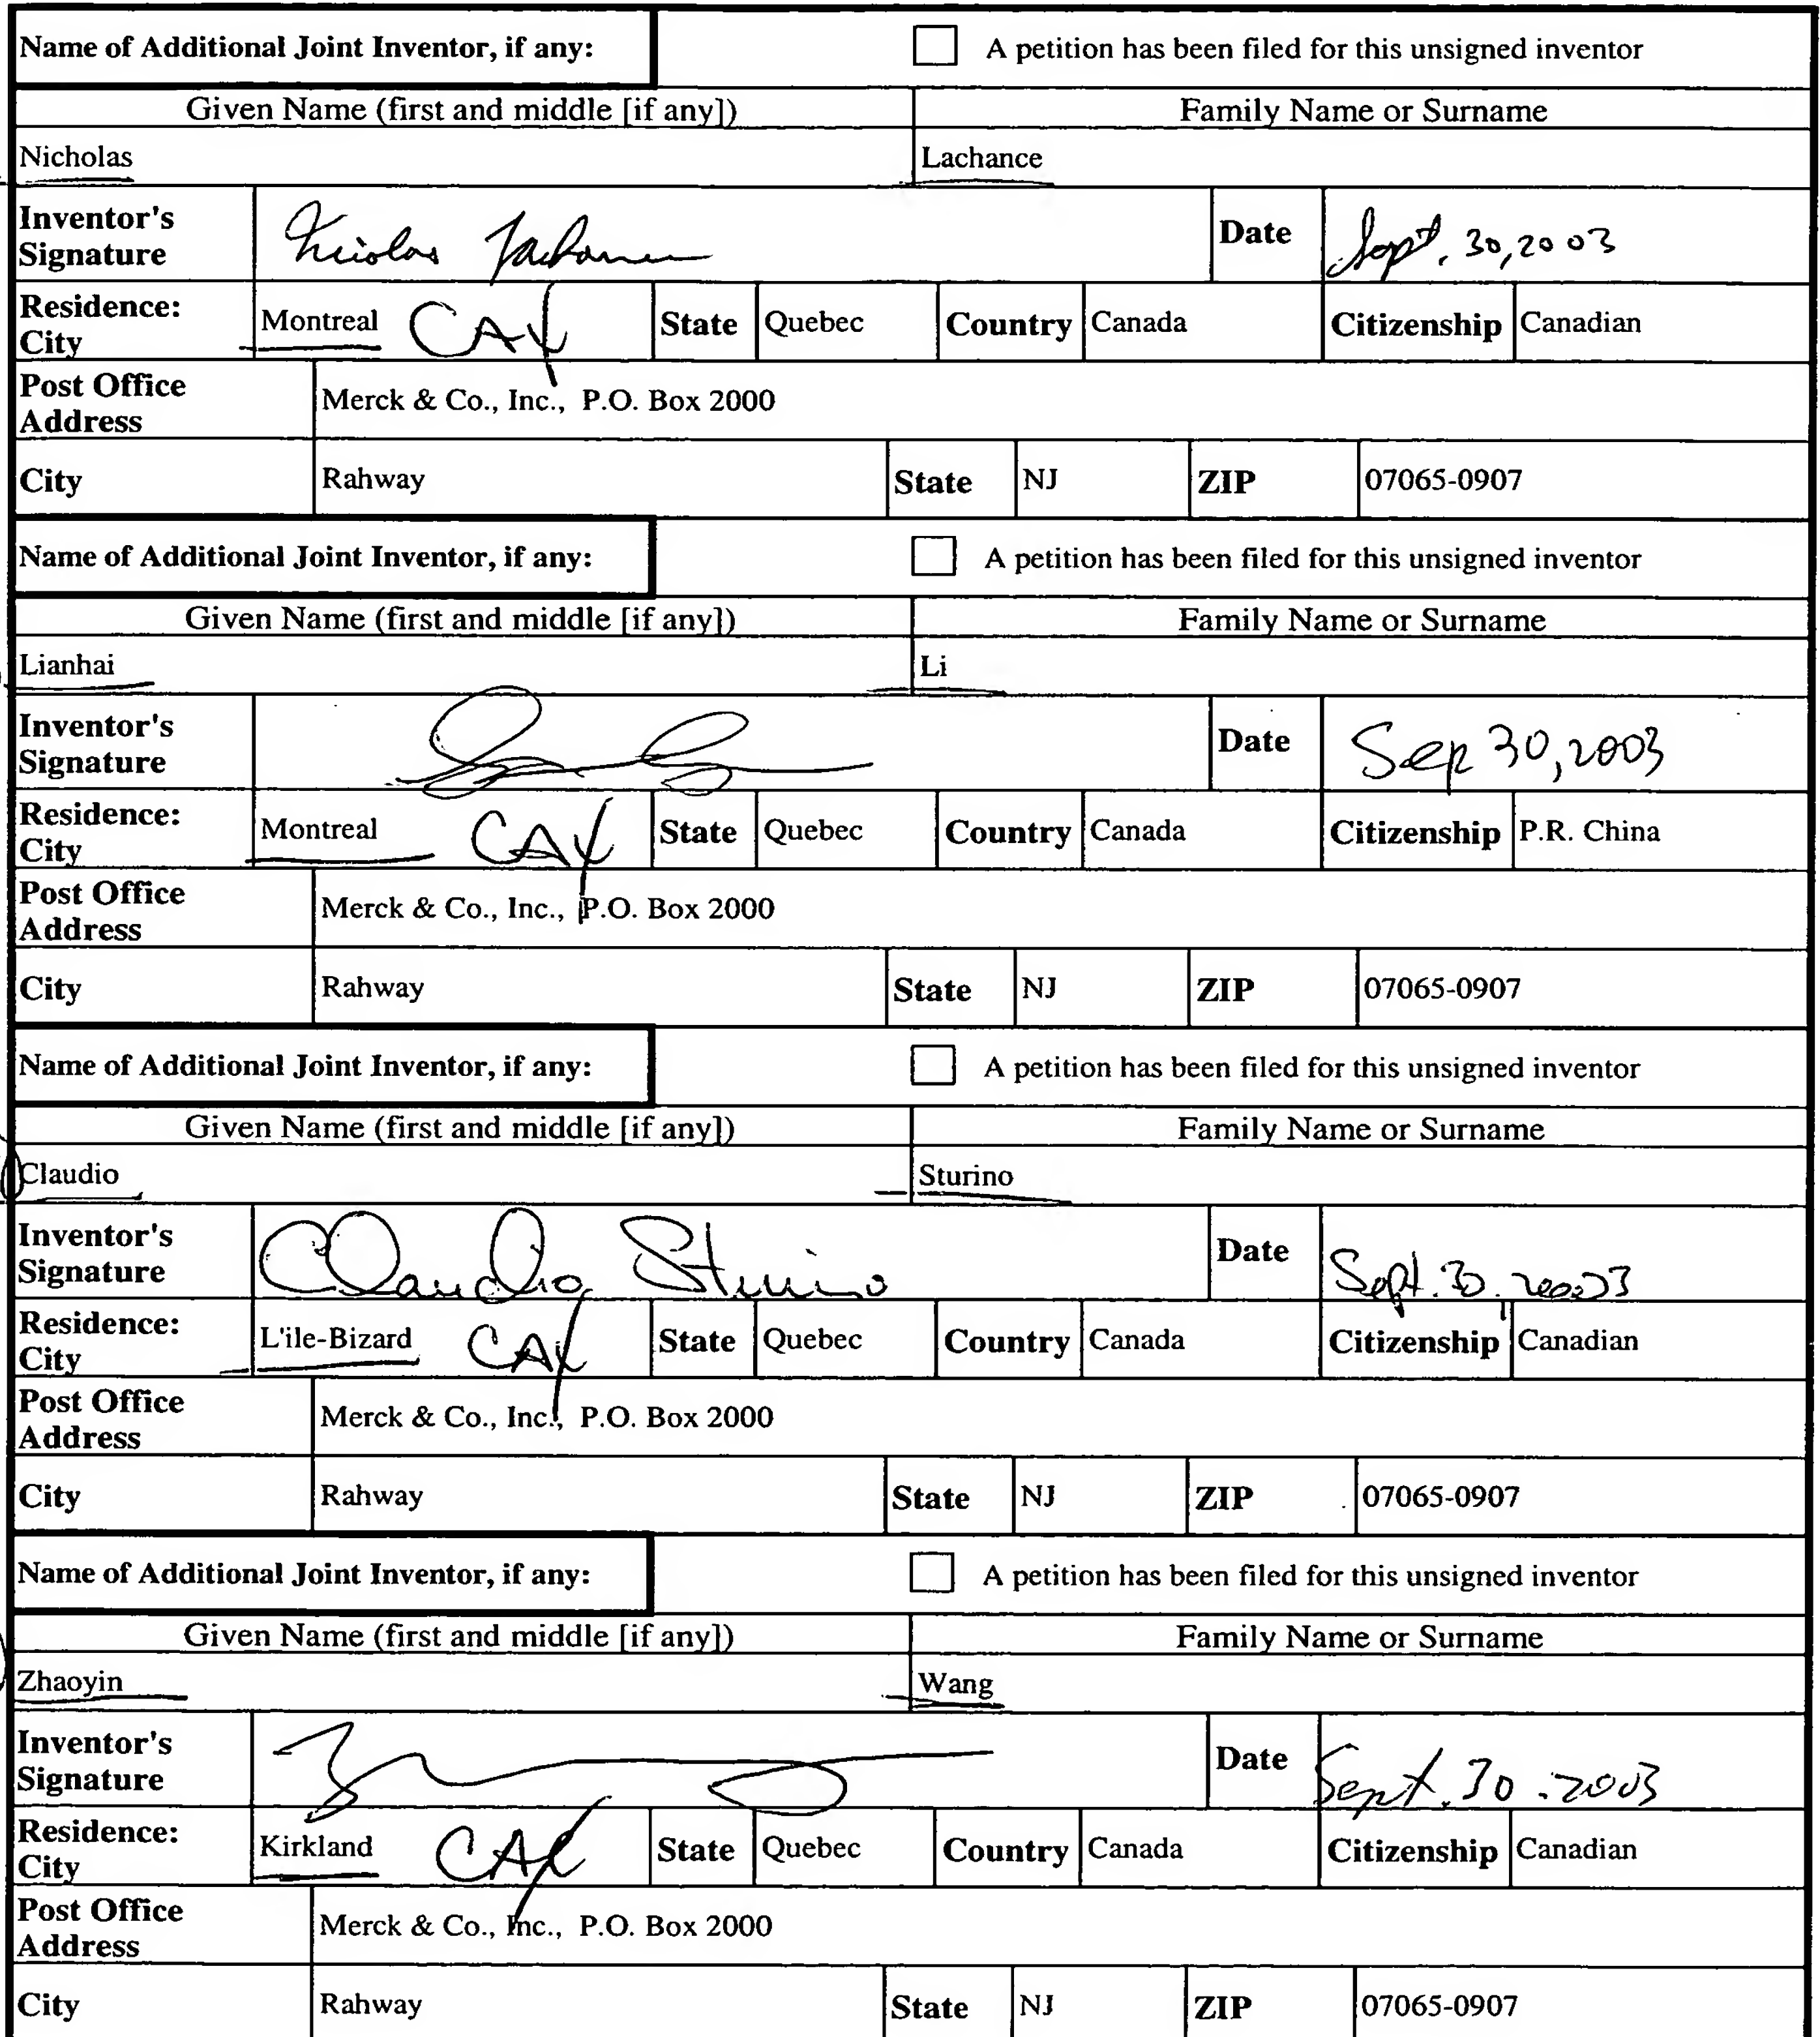 Name of Additional Joint Inventor, if any: A petition has been filed for this unsigned inventor
Given Name (first and middle [if any]) Family Name or Surname
Nicholas Lachance
Inventor's Signature Nicolas Lachance Date Sept. 30, 2003
Residence: City Montreal CAX State Quebec Country Canada Citizenship Canadian
Post Office Address Merck & Co., Inc., P.O. Box 2000
City Rahway State NJ ZIP 07065-0907
Name of Additional Joint Inventor, if any: A petition has been filed for this unsigned inventor
Given Name (first and middle [if any]) Family Name or Surname
Lianhai Li
Inventor's Signature Date Sep 30, 2003
Residence: City Montreal CAX State Quebec Country Canada Citizenship P.R. China
Post Office Address Merck & Co., Inc., P.O. Box 2000
City Rahway State NJ ZIP 07065-0907
Name of Additional Joint Inventor, if any: A petition has been filed for this unsigned inventor
Given Name (first and middle [if any]) Family Name or Surname
Claudio Sturino
Inventor's Signature Claudio Sturino Date Sept. 30.
Residence: City L'ile-Bizard CAX State Quebec Country Canada Citizenship Canadian
Post Office Address Merck & Co., Inc., P.O. Box 2000
City Rahway State NJ ZIP 07065-0907
Name of Additional Joint Inventor, if any: A petition has been filed for this unsigned inventor
Given Name (first and middle [if any]) Family Name or Surname
Zhaoyin Wang
Inventor's Signature Date Sept. 30. 2003
Residence: City Kirkland CAX State Quebec Country Canada Citizenship Canadian
Post Office Address Merck & Co., Inc., P.O. Box 2000
City Rahway State NJ ZIP 07065-0907